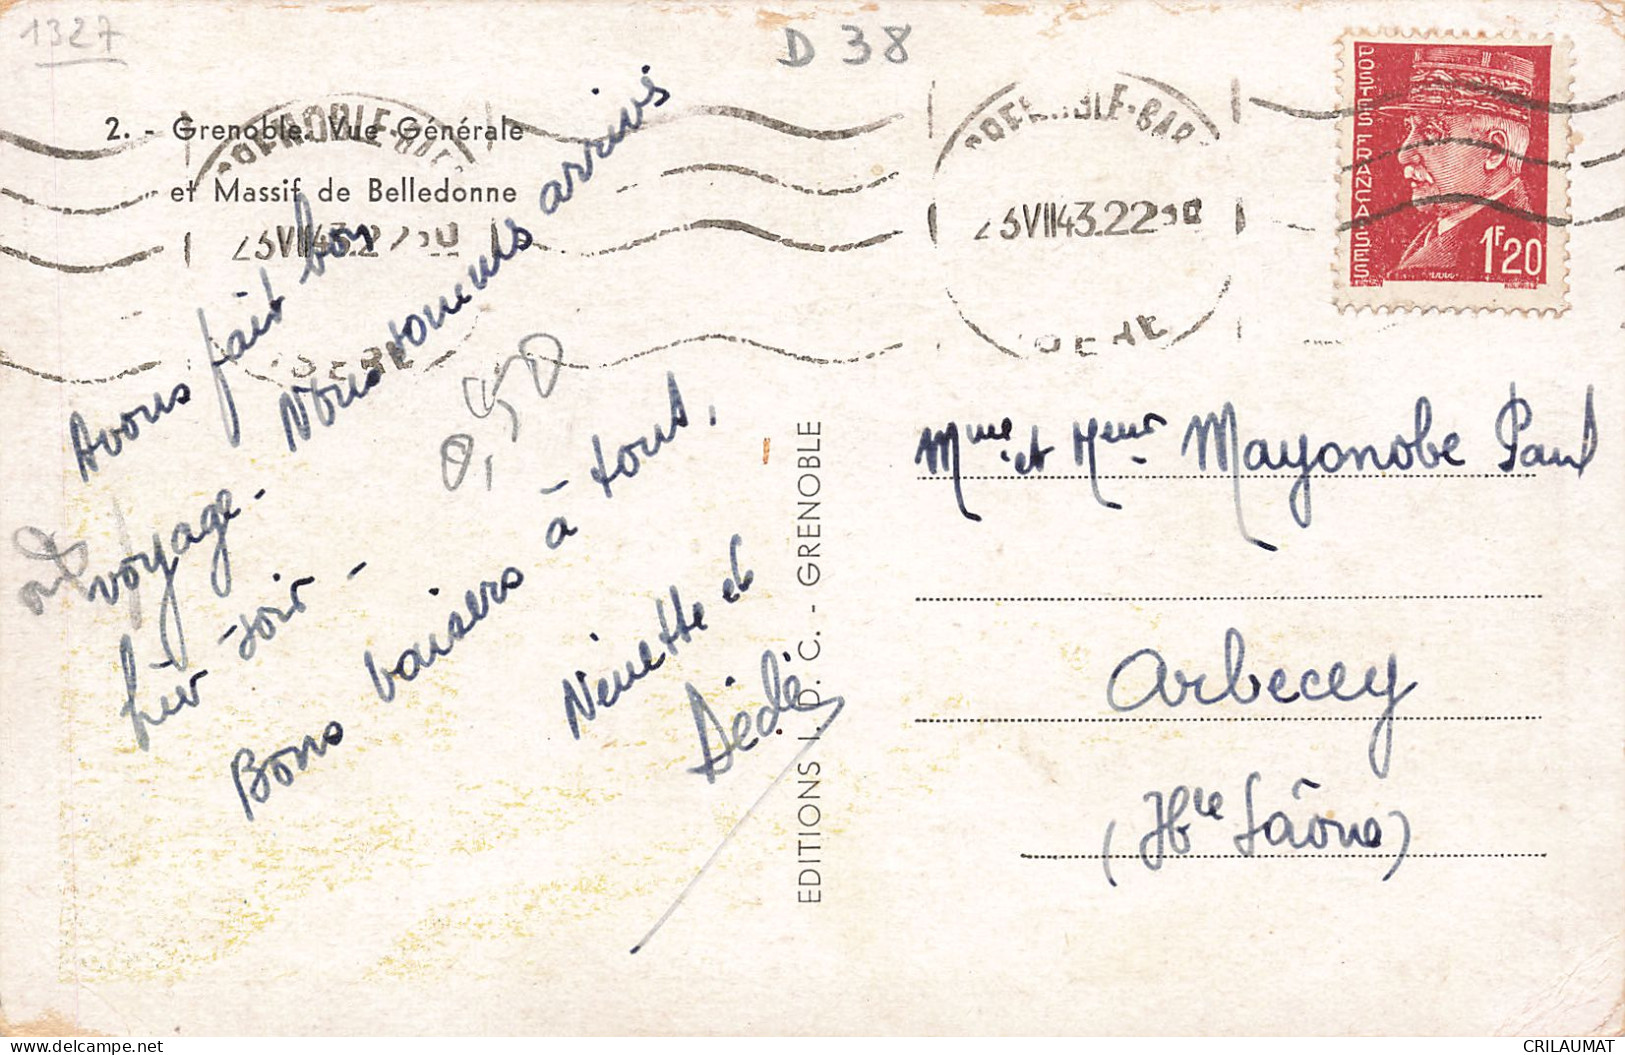 1327
D 38
2. - Grenoble. Vue Générale
et Massif de Belledonne
GRENOBLE-GARE
23 VII 43. 22
ISERE
GRENOBLE-GARE
23 VII 43. 22
ISERE
POSTES FRANÇAISES
1F20
Avons fait bon
voyage -
Nous sommes arrivés
hier soir -
Bons baisers à tout.
Ninette et
Dédé
0,50
EDITIONS I. D. C. - GRENOBLE
Mme et Meur Mayonobe Paul
Arbecey
(Hte Saône)
delcampe.net
CRILAUMAT